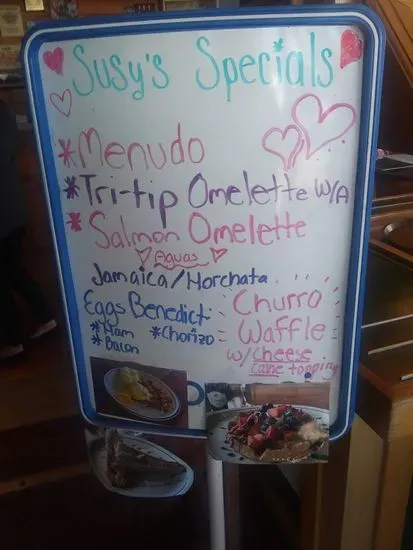 Susy's Specials
*Menudo
*Tri-tip Omelette W/A
*Salmon Omelette
Aguas
Jamaica/Horchata
Eggs Benedict
*Ham *Chorizo
*Bacon
Churro
Waffle
w/ Cheese
cake topping